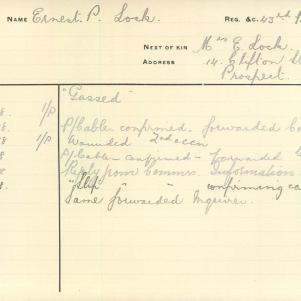 NAME Ernest. P. Lock. REG. &C. 43rd
NEXT OF KIN Mrs E. Lock.
ADDRESS 14. Clifton St
Prospect.
"Gassed"
8. 1/P
8. P/Cable confirmed. forwarded
8 1/P Wounded 2nd occn
8 P/Cable confirmed - forwarded
8 Reply from Comms. Information.
"Slip" " " confirming ca
Same forwarded Inquirer.